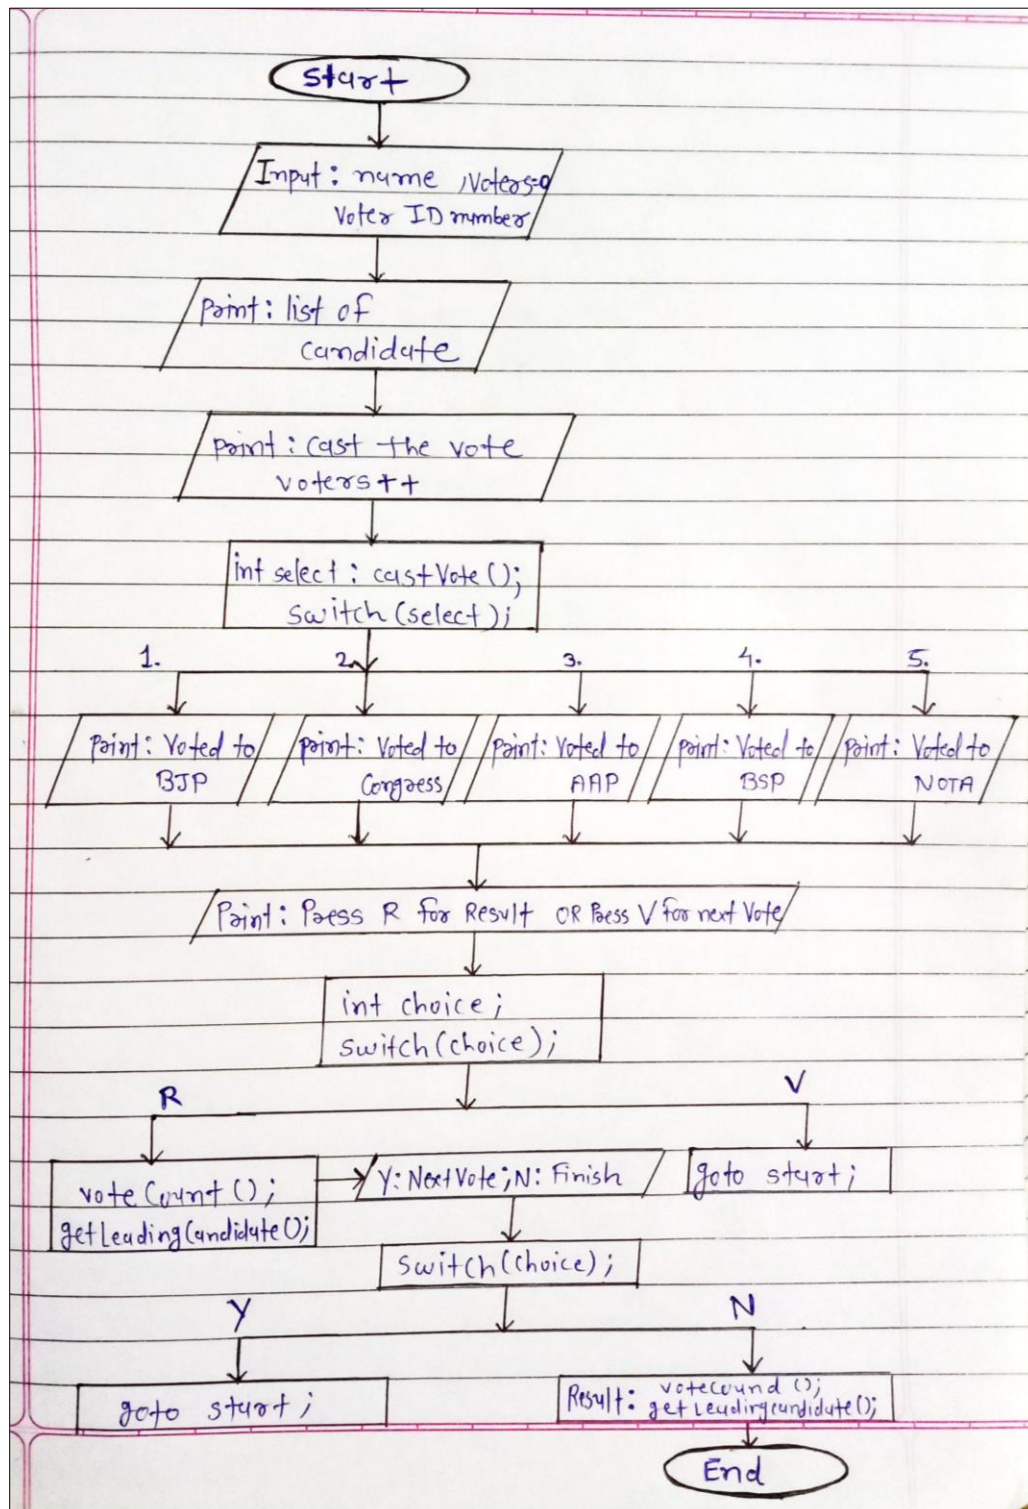 Start
Input: name, Voters=0
Voter ID number
Print: list of
candidate
Print: cast the vote
voters++
int select: castVote();
switch(select);
1. 2. 3. 4. 5.
Print: Voted to
BJP
Print: Voted to
Congress
Print: Voted to
AAP
Print: Voted to
BSP
Print: Voted to
NOTA
Print: Press R for Result OR Press V for next Vote
int choice;
switch(choice);
R V
voteCount();
getLeadingCandidate();
Y: NextVote; N: Finish
goto start;
switch(choice);
Y N
goto start;
Result: votecound();
getLeadingcandidate();
End